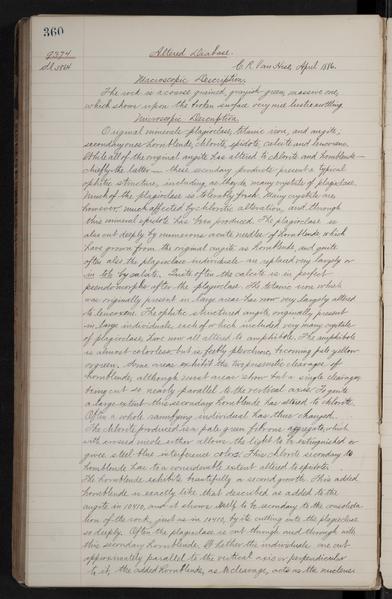 360
9274
Sl. 1884
Altered Diabase.
C. R. Van Hise, April 1886.
Macroscopic Description.
The rock is a coarse grained, grayish-green, massive one,
which shows upon the broken surface very well lustre mottling.
Microscopic Description.
Original minerals plagioclase, titanic iron, and augite;
secondary ones hornblende, chlorite, epidote, calcite and leucoxene.
While all of the original augite has altered to chlorite and hornblende —
chiefly the latter — these secondary products present a typical
ophitic structure, including, as they do, many crystals of plagioclase.
Much of the plagioclase is tolerably fresh. Many crystals are,
however, much affected by chloritic alteration, and through
this mineral epidote has been produced. The plagioclase is
also cut deeply by numerous acute needles of hornblende which
have grown from the original augite as hornblende, and quite
often also the plagioclase individuals are replaced very largely or
in toto by calcite. Quite often the calcite is in perfect
pseudomorphs after the plagioclase. The titanic iron which
was originally present in large areas has now very largely altered
to leucoxene. The ophitic structured augite, originally present
in large individuals, each of which included very many crystals
of plagioclase, have now all altered to amphibole. The amphibole
is almost colorless but is feebly pleochroic, becoming pale yellow
green. Some areas exhibit the two prismatic cleavages of
hornblende, although most areas show but a single cleavage,
being cut so nearly parallel to the vertical axis. To quite
a large extent this secondary hornblende has altered to chlorite.
Often a whole ramifying individual has thus changed.
The chlorite produced is a pale green fibrous aggregate, which
with crossed nicols either allows the light to be extinguished or
gives steel-blue interference colors. This chlorite secondary to
hornblende has to a considerable extent altered to epidote.
The hornblende exhibits beautifully a second growth. This added
hornblende is exactly like that described as added to the
augite in 10410, and it shows itself to be secondary to the consolida
tion of the rock, just as in 10410, by its cutting into the plagioclase
so deeply. Often the plagioclase is cut through and through with
this secondary hornblende. Whether the individuals are cut
approximately parallel to the vertical axis or perpendicular
to it, the added hornblende, as to cleavage, acts as the nucleus